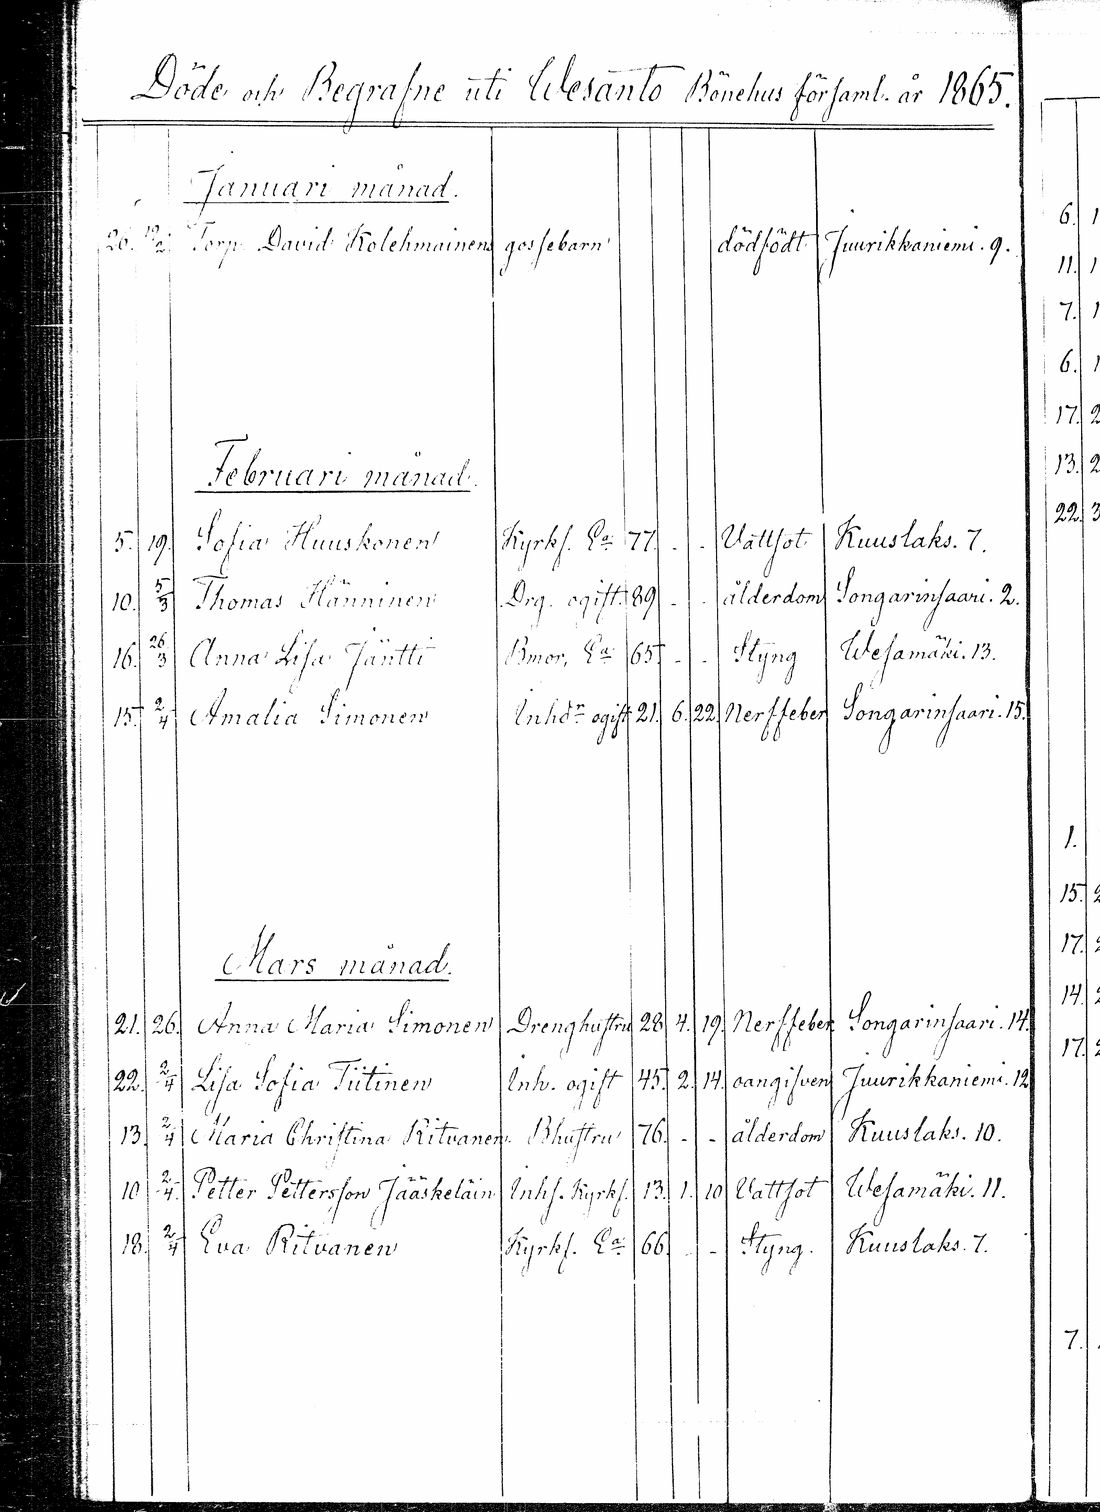 Döde och Begrafne uti Wesanto Bönehus församl. år 1865.
Januari månad.
26. 12/2. Torp. David Kolehmainens gossebarn dödfödt Juurikkaniemi. 9.
Februari månad.
5. 19. Sofia Huuskonen Kyrkf. Ea 77. - - Vattsot Kuuslaks. 7.
10. 5/3 Thomas Hänninen Drg. ogift. 89 - - ålderdom Songarinsaari. 2.
16. 26/3 Anna Lisa Jäntti Bmor, Ea 65. - - Styng Wesamäki. 13.
15. 2/4 Amalia Simonen Inhdr ogift 21. 6. 22. Nerffeber Songarinsaari. 15.
Mars månad.
21. 26. Anna Maria Simonen Drenghustru 28 4. 19. Nerffeber Songarinsaari. 14.
22. 2/4 Lisa Sofia Tiitinen Inh. ogift 45. 2. 14. oangifven Juurikkaniemi. 12
13. 2/4 Maria Christina Ritvanen. Bhustru 76. - - ålderdom Kuuslaks. 10.
10 2/4. Petter Pettersson Jääskeläin Inhs. Kyrkf. 13. 1. 10 Vattsot Wesamäki. 11.
18. 2/4 Eva Ritvanen Kyrkf. Ea 66. - - Styng. Kuuslaks. 7.
6.
11.
7.
6.
17.
13.
22.
1.
15.
17.
14.
17.
7.